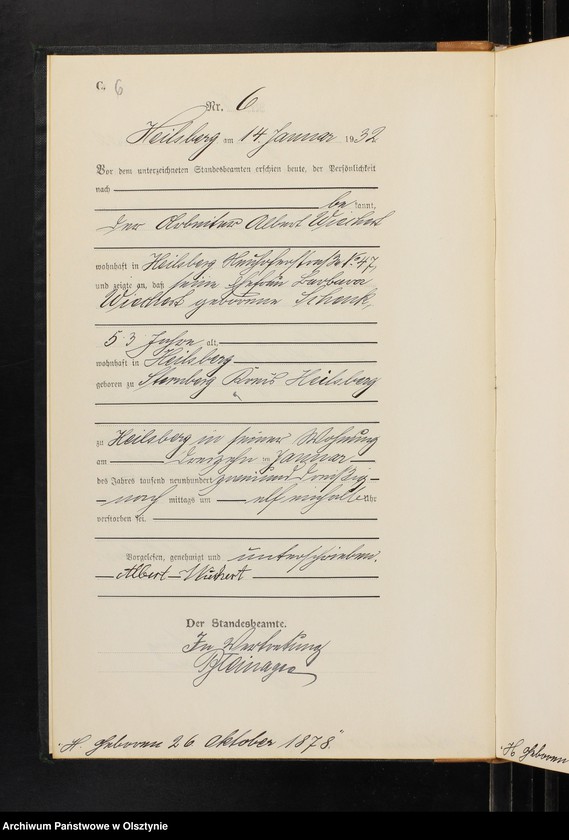 C. 6
Nr. 6
Heilsberg am 14. Januar 1932
Vor dem unterzeichneten Standesbeamten erschien heute, der Persönlichkeit
nach
be kannt,
der Arbeiter Albert Wiechert
wohnhaft in Heilsberg Neuhoferstraße № 47,
und zeigte an, daß seine Ehefrau Barbara
Wiechert geborene Schenk,
53 Jahre alt,
wohnhaft in Heilsberg
geboren zu Sternberg Kreis Heilsberg
zu Heilsberg in seiner Wohnung
am dreizehn ten Januar
des Jahres tausend neunhundert zweiunddreißig
nach mittags um elfeinhalb Uhr
verstorben sei.
Vorgelesen, genehmigt und unterschrieben.
Albert Wiechert
Der Standesbeamte.
In Vertretung
"H. Geboren 26 Oktober 1878"
"H. Geboren
Archiwum Państwowe w Olsztynie